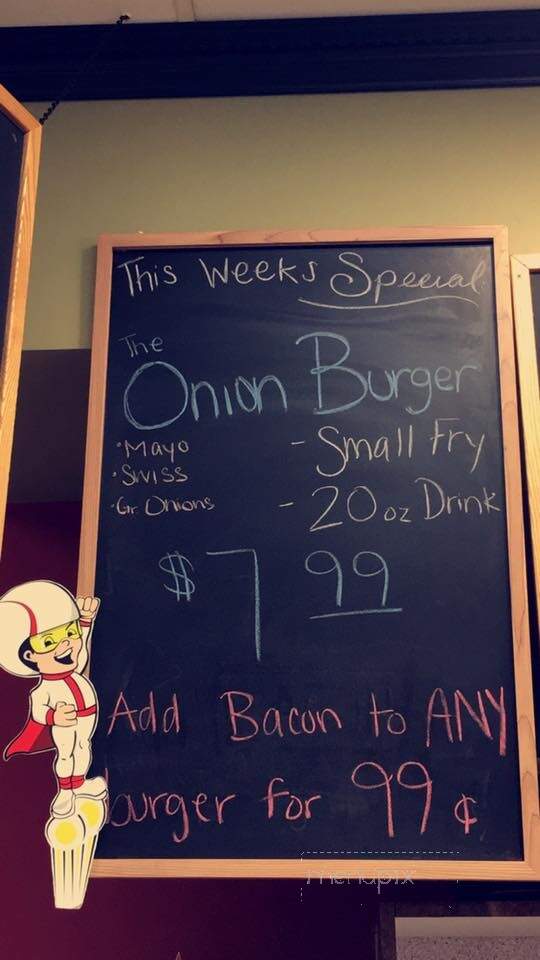 This Weeks Special
The
Onion Burger
·Mayo
·Swiss
·Gr. Onions
- Small Fry
- 20 oz Drink
$7 99
Add Bacon to ANY
burger for 99 ¢
menupix